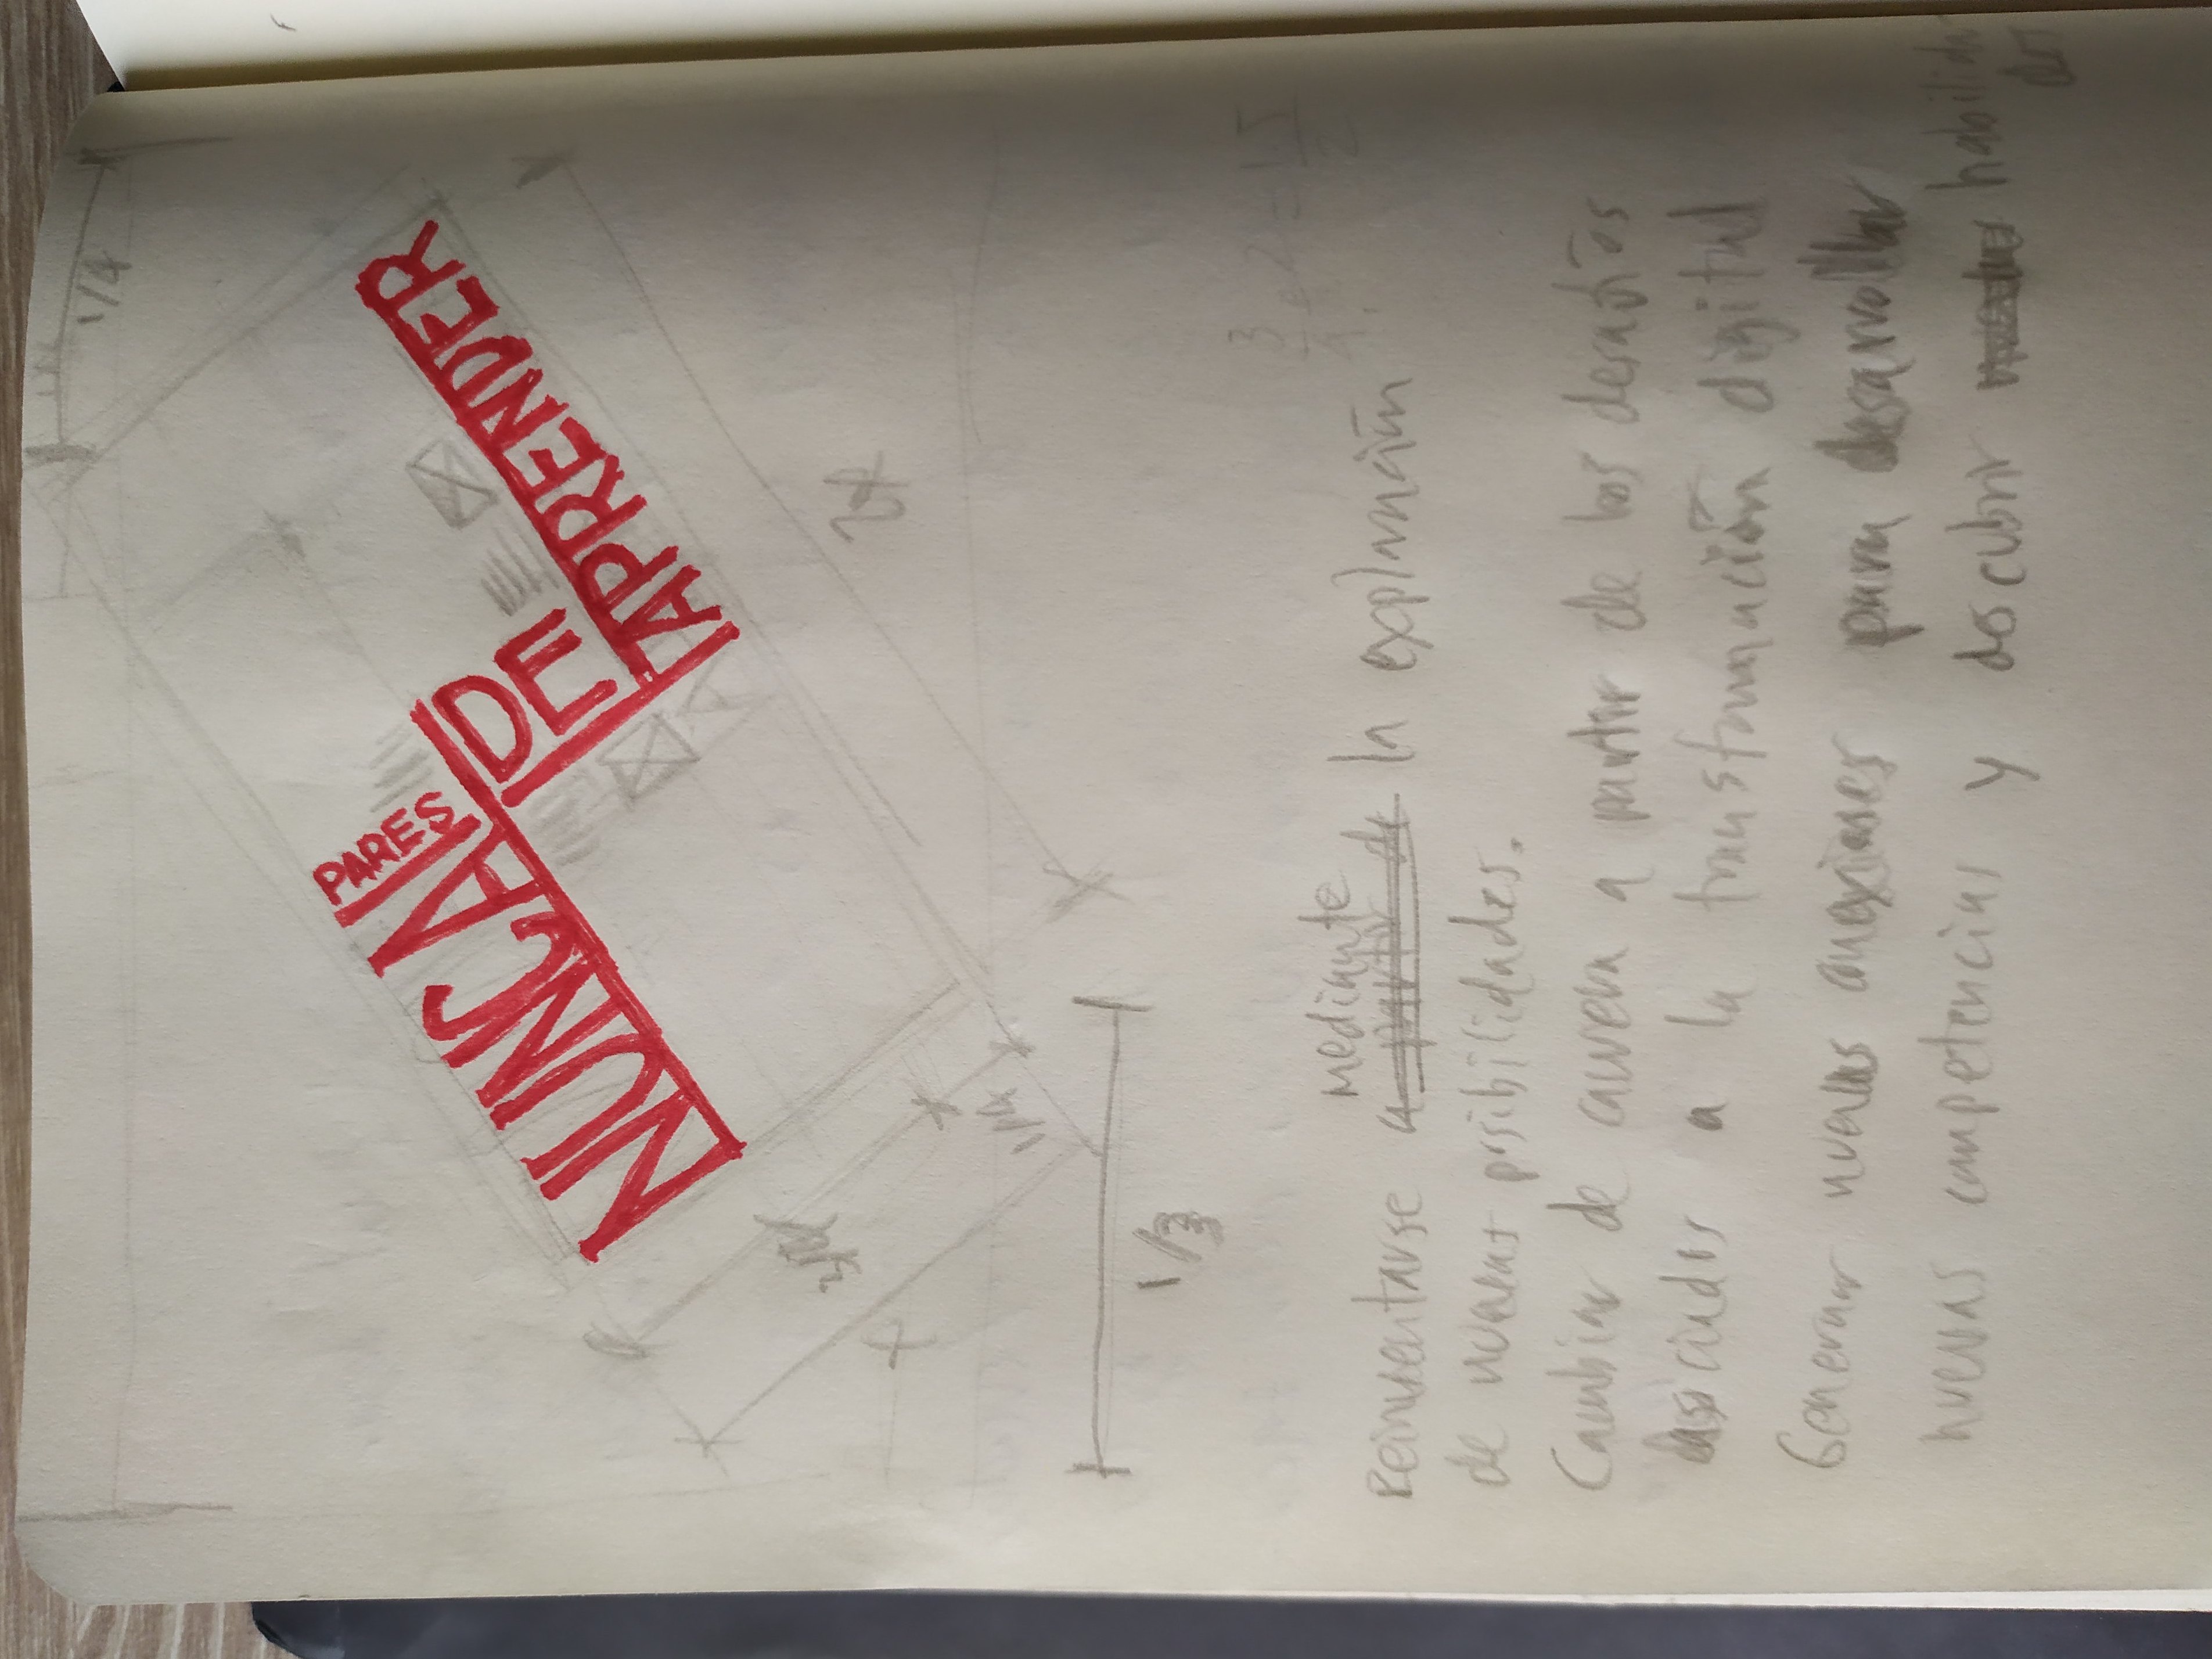 1/4
NUNCA
PARES
DE
APRENDER
3/4
x
2x
1/4
1/3
mediante
Reinventarse a partir de la exploración
de nuevas posibilidades.
Cambiar de carrera a partir de los desafíos
asociados a la transformación digital
Generar nuevas conexiones para desarrollar
nuevas competencias y descubrir habilida
des